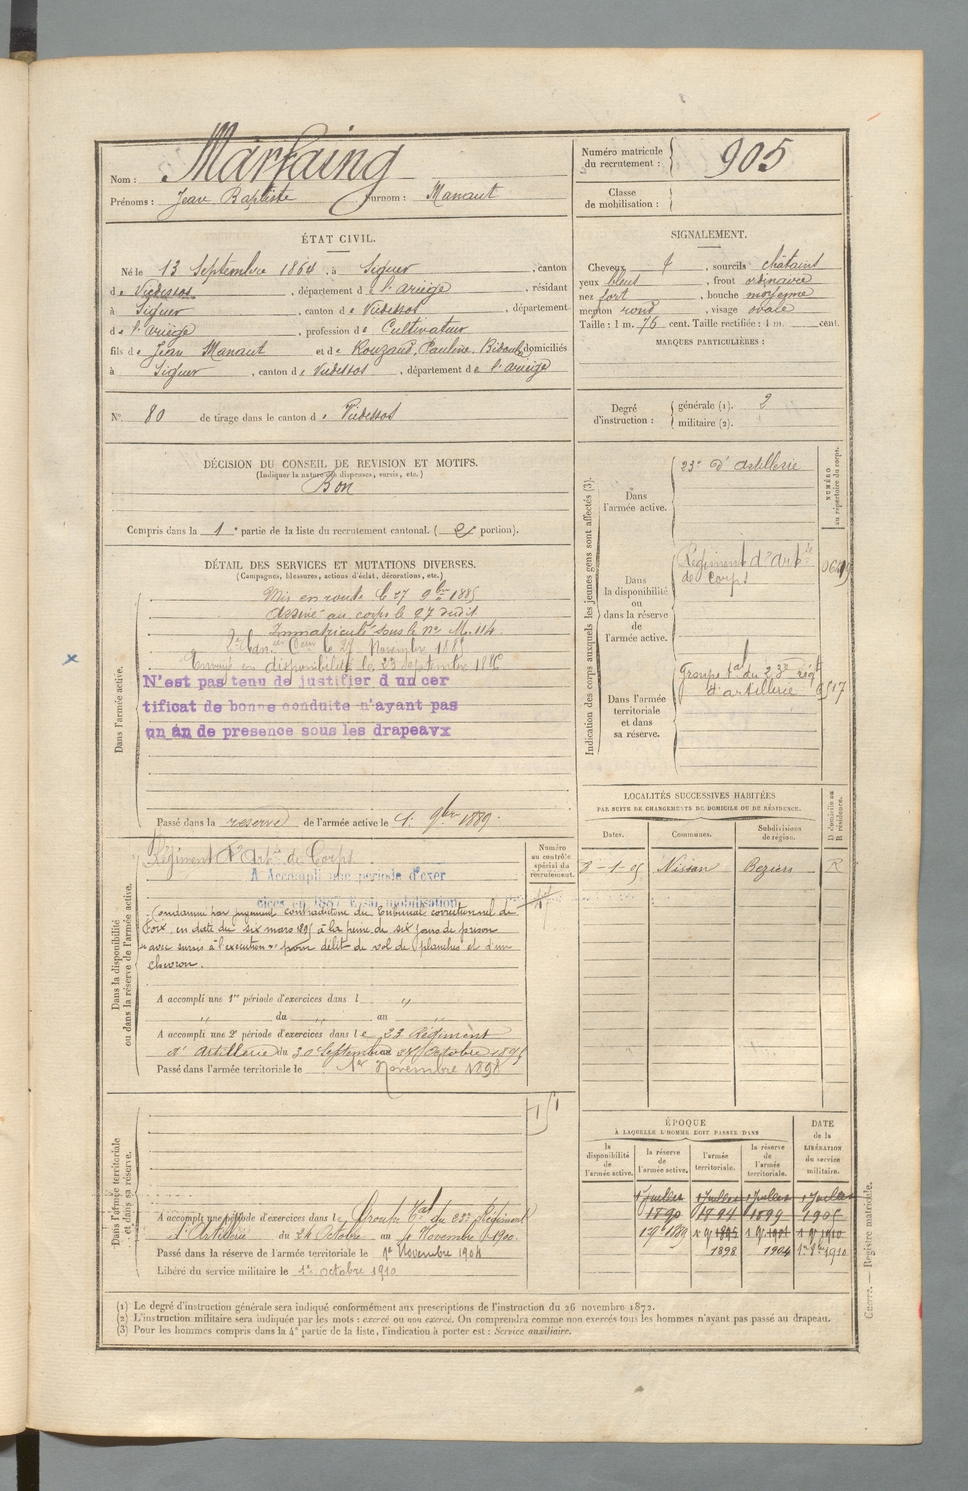 Nom : Marfaing
Prénoms : Jean Baptiste Surnom : Manaut
Numéro matricule
du recrutement : 905
Classe
de mobilisation :
ÉTAT CIVIL.
Né le 13 Septembre 1864, à Siguer, canton
de Vicdessos, département de l'ariège, résidant
à Siguer, canton de Vicdessos, département
de l'ariège, profession de Cultivateur
fils de Jean Manaut et de Rouzaud, Pauline, domiciliés
à Siguer, canton de Vicdessos, département de l'ariège
N° 80 de tirage dans le canton de Vicdessos
SIGNALEMENT.
Cheveux, sourcils châtains
yeux bleus, front ordinaire
nez fort, bouche moyenne
menton rond, visage ovale
Taille : 1 m. 76 cent. Taille rectifiée : 1 m. cent.
MARQUES PARTICULIÈRES :
Degré
d'instruction :
générale (1). 2
militaire (2).
DÉCISION DU CONSEIL DE REVISION ET MOTIFS.
(Indiquer la nature des dispenses, sursis, etc.)
Bon
Compris dans la 1e partie de la liste du recrutement cantonal. (2e portion).
DÉTAIL DES SERVICES ET MUTATIONS DIVERSES.
(Campagnes, blessures, actions d'éclat, décorations, etc.)
Dans l'armée active.
Mis en route le 27 9bre 1885
au corps le 27 dudit
Immatriculé sous le no M. 114
le 27 Novembre 1885
Envoyé en disponibilité le 23 septembre 1886
N'est pas tenu de justifier d un cer
tificat de bonne conduite n'ayant pas
un an de presence sous les drapeavx
Passé dans la reserve de l'armée active le 1. 9bre 1889.
Dans la disponibilité
ou dans la réserve de l'armée active.
Régiment d'Arty de Corps
Numéro
au contrôle
spécial du
recrutement.
A Accompli une période d'exer
cices en 1887 Essai mobilisation
Condamné par jugement contradictoire du Tribunal correctionnel de
Foix, en date du six mars 1895 à la peine de six jours de prison
"avec sursis à l'execution" pour délit de vol de planches et d'un
chevron.
A accompli une 1re période d'exercices dans l "
" du " au "
A accompli une 2e période d'exercices dans le 23 Régiment
d'Artillerie du 30 Septembre au 27 Octobre 1895
Passé dans l'armée territoriale le 1er Novembre 1898
Dans l'armée territoriale
et dans sa réserve.
A accompli une période d'exercices dans le Groupe tal du 23e Régiment
d'Artillerie du 24 Octobre au 4 Novembre 1900.
Passé dans la réserve de l'armée territoriale le 1er Novembre 1904
Libéré du service militaire le 1er octobre 1910
Indication des corps auxquels les jeunes gens sont affectés (3).
NUMÉRO
au répertoire du corps.
Dans
l'armée active.
23e d'artillerie
Dans
la disponibilité
ou
dans la réserve
de
l'armée active.
Régiment d'Artie
de Corps
Dans l'armée
territoriale
et dans
sa réserve.
Groupe tal du 23e régt
d'artillerie
LOCALITÉS SUCCESSIVES HABITÉES
PAR SUITE DE CHANGEMENTS DE DOMICILE OU DE RÉSIDENCE.
Dates. Communes. Subdivisions
de région.
D domicile ou
R résidence.
Nissan Beziers R
ÉPOQUE
À LAQUELLE L'HOMME DOIT PASSER DANS
DATE
de la
LIBÉRATION
du service
militaire.
la
disponibilité
de
l'armée active.
la réserve
de
l'armée active.
l'armée
territoriale.
la réserve
de
l'armée
territoriale.
1 Juillet 1 Juillet 1 Juillet 1 Juillet
1890 1894 1899 1905
1 9bre 1889
1898 1904 1910
(1) Le degré d'instruction générale sera indiqué conformément aux prescriptions de l'instruction du 26 novembre 1872.
(2) L'instruction militaire sera indiquée par les mots : exercé ou non exercé. On comprendra comme non exercés tous les hommes n'ayant pas passé au drapeau.
(3) Pour les hommes compris dans la 4e partie de la liste, l'indication à porter est : Service auxiliaire.
Guerre. — Registre matricule.